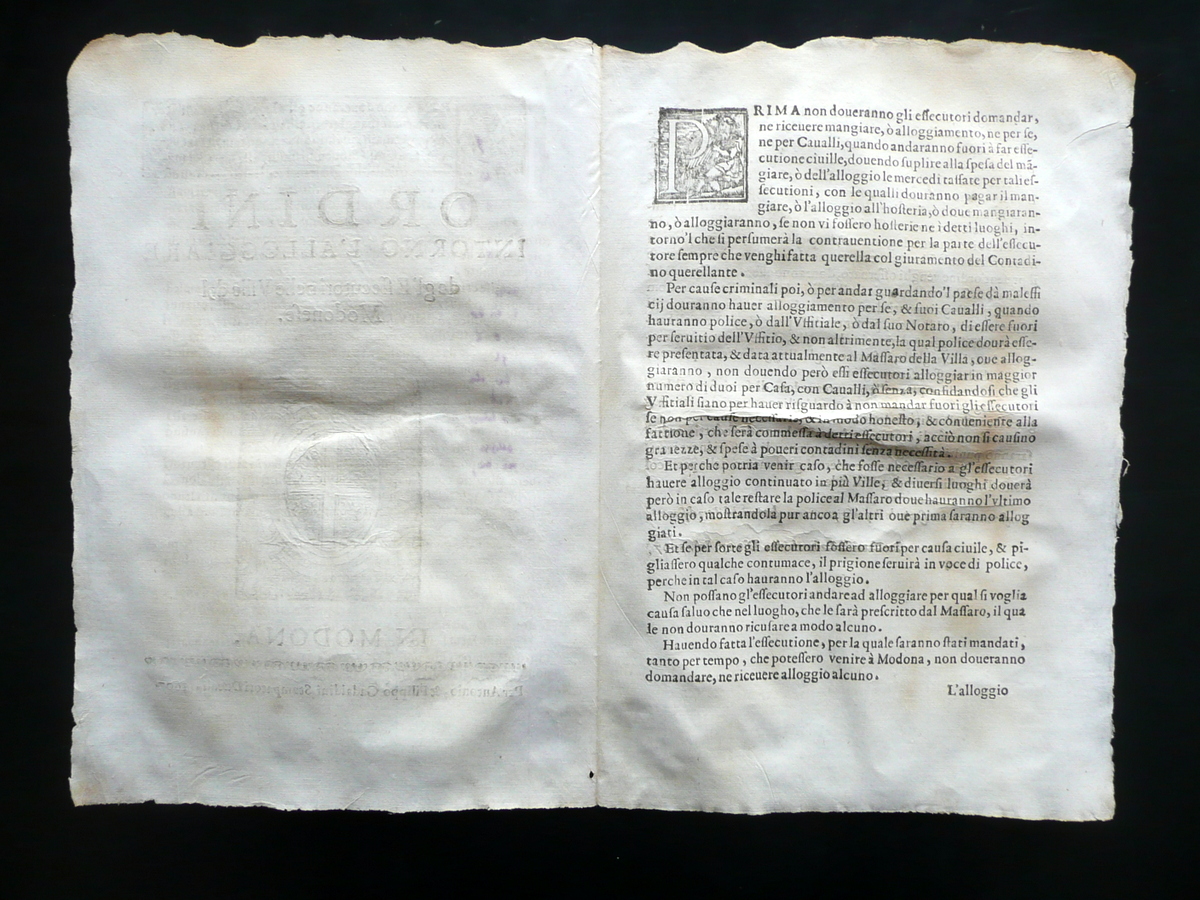 ORDINI
INTORNO L'ALLOGGIARE
degl'Essecutori nelle Ville del
Modonese.
IN MODONA,
PRIMA non doueranno gli eſſecutori domandar,
ne riceuere mangiare, ò alloggiamento, ne per ſe,
ne per Caualli, quando andaranno fuori à far eſſe-
cutione ciuille, douendo ſuplire alla ſpeſa del mã-
giare, ò dell'alloggio le mercedi taſſate per tali eſ-
ſecutioni, con le qualli douranno pagar il man-
giare, ò l'alloggio all'hoſteria, ò doue mangiaran-
no, ò alloggiaranno, ſe non vi foſſero hoſterie ne i detti luoghi, in-
torno'l che ſi perſumerà la contrauentione per la parte dell'eſſecu-
tore ſempre che venghi fatta querella col giuramento del Contadi-
no querellante.
Per cauſe criminali poi, ò per andar guardando'l paeſe dà maleffi
cij douranno hauer alloggiamento per ſe, & ſuoi Caualli, quando
hauranno police, ò dall'Vffitiale, ò dal ſuo Notaro, di eſſere fuori
per ſeruitio dell'Vffitio, & non altrimente, la qual police dourà eſſe-
re preſentata, & data attualmente al Maſſaro della Villa, oue allog-
giaranno, non douendo però eſſi eſſecutori alloggiar in maggior
numero di duoi per Caſa, con Caualli, ò ſenza, confidandoſi che gli
Vffitiali ſiano per hauer riſguardo à non mandar fuori gli eſſecutori
ſe non per cauſe neceſſarie, & in modo honeſto, & conueniente alla
fattione, che ſerà commeſſa à detti eſſecutori, acciò non ſi cauſino
grauezze, & ſpeſe à poueri contadini ſenza neceſſità.
Et perche potria venir caſo, che foſſe neceſſario a gl'eſſecutori
hauere alloggio continuato in più Ville, & diuerſi luoghi douerà
però in caſo tale reſtare la police al Maſſaro doue hauranno l'vltimo
alloggio, moſtrandola pur anco a gl'altri oue prima ſaranno allog
giati.
Et ſe per ſorte gli eſſecutori foſſero fuori per cauſa ciuile, & pi-
gliaſſero qualche contumace, il prigione ſeruirà in voce di police,
perche in tal caſo hauranno l'alloggio.
Non poſſano gl'eſſecutori andare ad alloggiare per qual ſi voglia
cauſa ſaluo che nel luogho, che le ſarà preſcritto dal Maſſaro, il qua
le non douranno ricuſare a modo alcuno.
Hauendo fatta l'eſſecutione, per la quale ſaranno ſtati mandati,
tanto per tempo, che poteſſero venire à Modona, non doueranno
domandare, ne riceuere alloggio alcuno.
L'alloggio